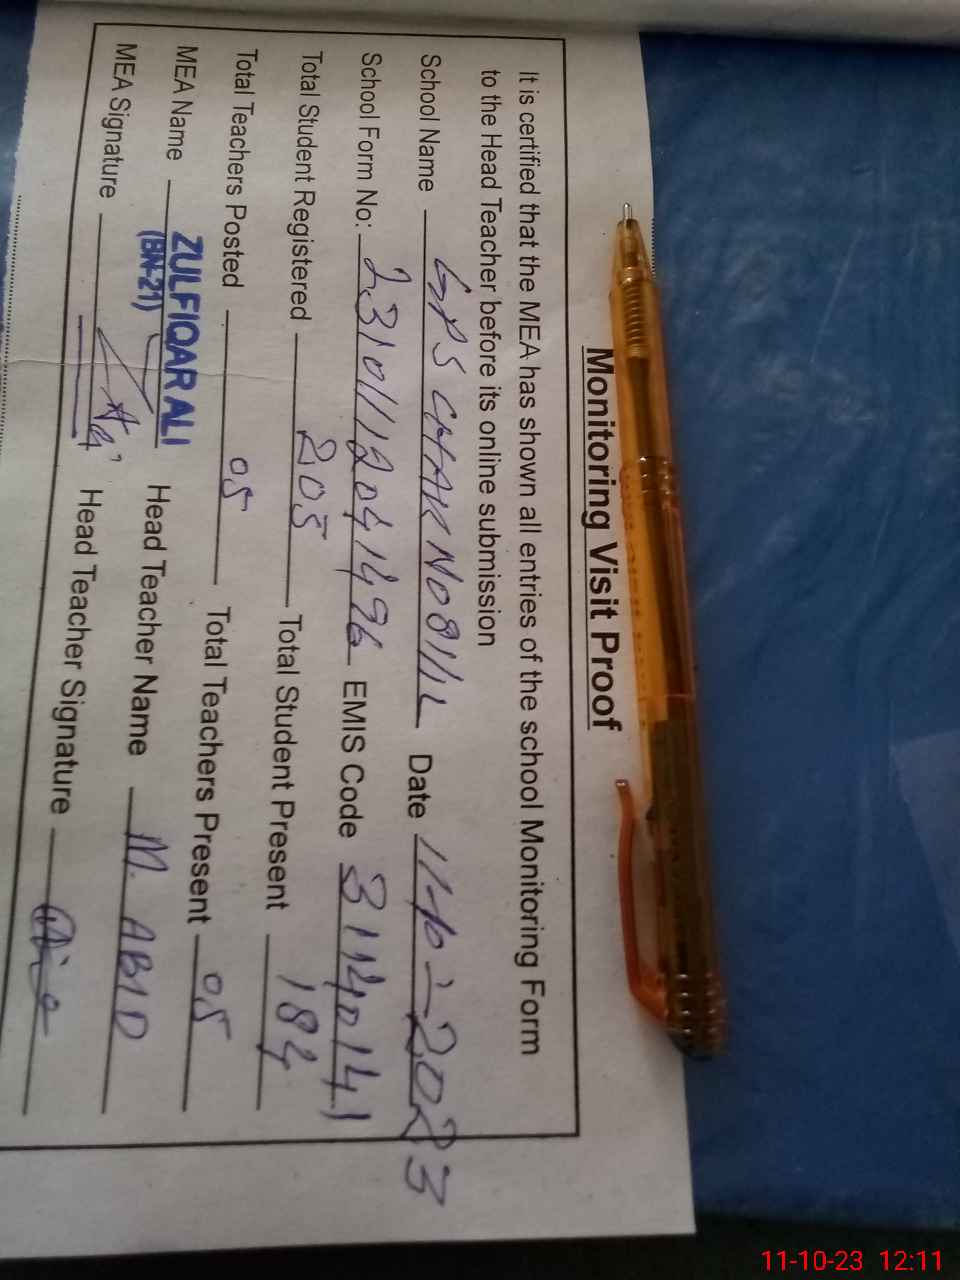 Monitoring Visit Proof
It is certified that the MEA has shown all entries of the school Monitoring Form
to the Head Teacher before its online submission
School Name GPS CHAK NO 81/1L Date 11-10-2023
School Form No: 23101112041496 EMIS Code 31140141
Total Student Registered 205 Total Student Present 184
Total Teachers Posted 05 Total Teachers Present 05
MEA Name ZULFIQAR ALI Head Teacher Name M. ABID
(BN-21)
MEA Signature Head Teacher Signature
11-10-23 12:11